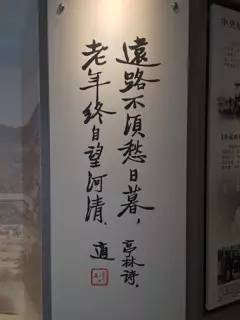 遠路不須愁日暮，
老年終自望河清．
亭林詩．
適
中央